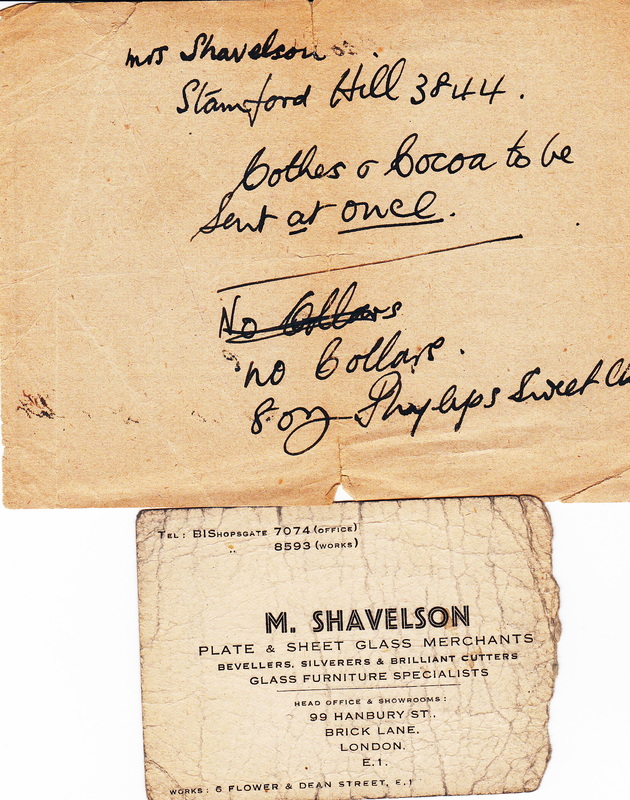 Mrs Shavelson
Stamford Hill 3844.
Cothes & Cocoa to be
Sent at once.
No Collars
no Collars.
8 oz Sweet
TEL: BISHOPSGATE 7074 (OFFICE)
8593 (WORKS)
M. SHAVELSON
PLATE & SHEET GLASS MERCHANTS
BEVELLERS, SILVERERS & BRILLIANT CUTTERS
GLASS FURNITURE SPECIALISTS
HEAD OFFICE & SHOWROOMS:
99 HANBURY ST.,
BRICK LANE,
LONDON.
E.1.
WORKS: 6 FLOWER & DEAN STREET, E.1